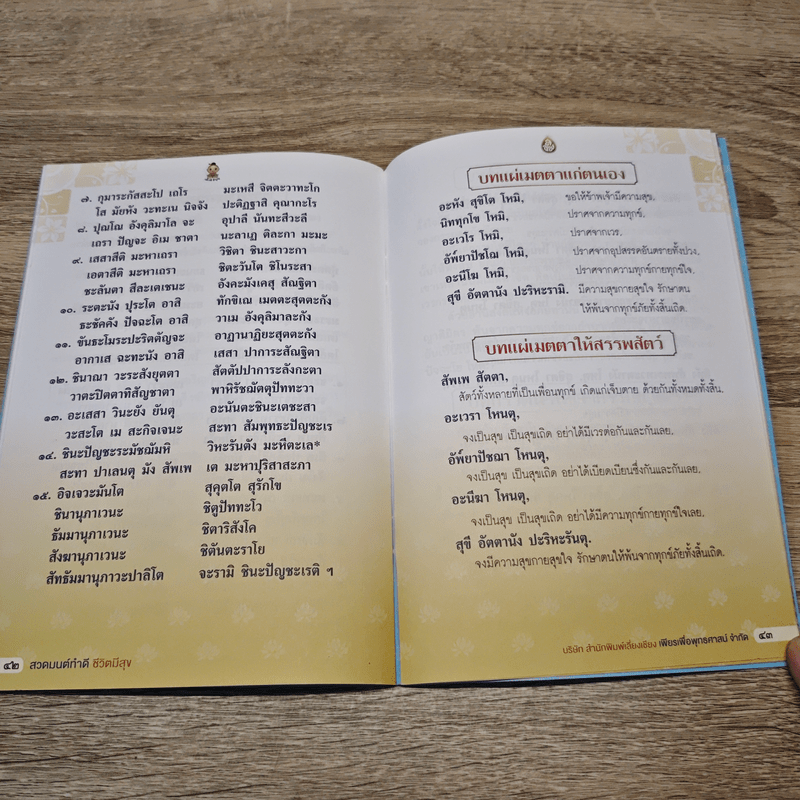 ๗. กุมาระกัสสะโป เถโร มะเหสี จิตตะวาทะโก
โส มัยหัง วะทะเน นิจจัง ปะติฏฐาสิ คุณากะโร
๘. ปุณโณ อังคุลิมาโล จะ อุปาลี นันทะสีวะลี
เถรา ปัญจะ อิเม ชาตา นะลาเฏ ติละกา มะมะ
๙. เสสาสีติ มะหาเถรา วิชิตา ชินะสาวะกา
เอตาสีติ มะหาเถรา ชิตะวันโต ชิโนระสา
ชะลันตา สีละเตเชนะ อังคะมังเคสุ สัณฐิตา
๑๐. ระตะนัง ปุระโต อาสิ ทักขิเณ เมตตะสุตตะกัง
ธะชัคคัง ปัจฉะโต อาสิ วาเม อังคุลิมาละกัง
๑๑. ขันธะโมระปะริตตัญจะ อาฏานาฏิยะสุตตะกัง
อากาเส ฉะทะนัง อาสิ เสสา ปาการะสัณฐิตา
๑๒. ชินาณา วะระสังยุตตา สัตตัปปาการะลังกะตา
วาตะปิตตาทิสัญชาตา พาหิรัชฌัตตุปัททะวา
๑๓. อะเสสา วินะยัง ยันตุ อะนันตะชินะเตชะสา
วะสะโต เม สะกิจเจนะ สะทา สัมพุทธะปัญชะเร
๑๔. ชินะปัญชะระมัชฌัมหิ วิหะรันตัง มะหีตะเล*
สะทา ปาเลนตุ มัง สัพเพ เต มะหาปุริสาสะภา
๑๕. อิจเจวะมันโต สุคุตโต สุรักโข
ชินานุภาเวนะ ชิตูปัททะโว
ธัมมานุภาเวนะ ชิตาริสังโค
สังฆานุภาเวนะ ชิตันตะราโย
สัทธัมมานุภาวะปาลิโต จะรามิ ชินะปัญชะเรติ ฯ
๔๒ สวดมนต์ทำดี ชีวิตมีสุข
บทแผ่เมตตาแก่ตนเอง
อะหัง สุขิโต โหมิ, ขอให้ข้าพเจ้ามีความสุข,
นิททุกโข โหมิ, ปราศจากความทุกข์,
อะเวโร โหมิ, ปราศจากเวร,
อัพ๎ยาปัชโฌ โหมิ, ปราศจากอุปสรรคอันตรายทั้งปวง,
อะนีโฆ โหมิ, ปราศจากความทุกข์กายทุกข์ใจ,
สุขี อัตตานัง ปะริหะรามิ. มีความสุขกายสุขใจ รักษาตน
ให้พ้นจากทุกข์ภัยทั้งสิ้นเถิด.
บทแผ่เมตตาให้สรรพสัตว์
สัพเพ สัตตา,
สัตว์ทั้งหลายที่เป็นเพื่อนทุกข์ เกิดแก่เจ็บตาย ด้วยกันทั้งหมดทั้งสิ้น,
อะเวรา โหนตุ,
จงเป็นสุข เป็นสุขเถิด อย่าได้มีเวรต่อกันและกันเลย,
อัพ๎ยาปัชฌา โหนตุ,
จงเป็นสุข เป็นสุขเถิด อย่าได้เบียดเบียนซึ่งกันและกันเลย,
อะนีฆา โหนตุ,
จงเป็นสุข เป็นสุขเถิด อย่าได้มีความทุกข์กายทุกข์ใจเลย,
สุขี อัตตานัง ปะริหะรันตุ.
จงมีความสุขกายสุขใจ รักษาตนให้พ้นจากทุกข์ภัยทั้งสิ้นเถิด.
บริษัท สำนักพิมพ์เลี่ยงเชียง เพียรเพื่อพุทธศาสน์ จำกัด ๔๓